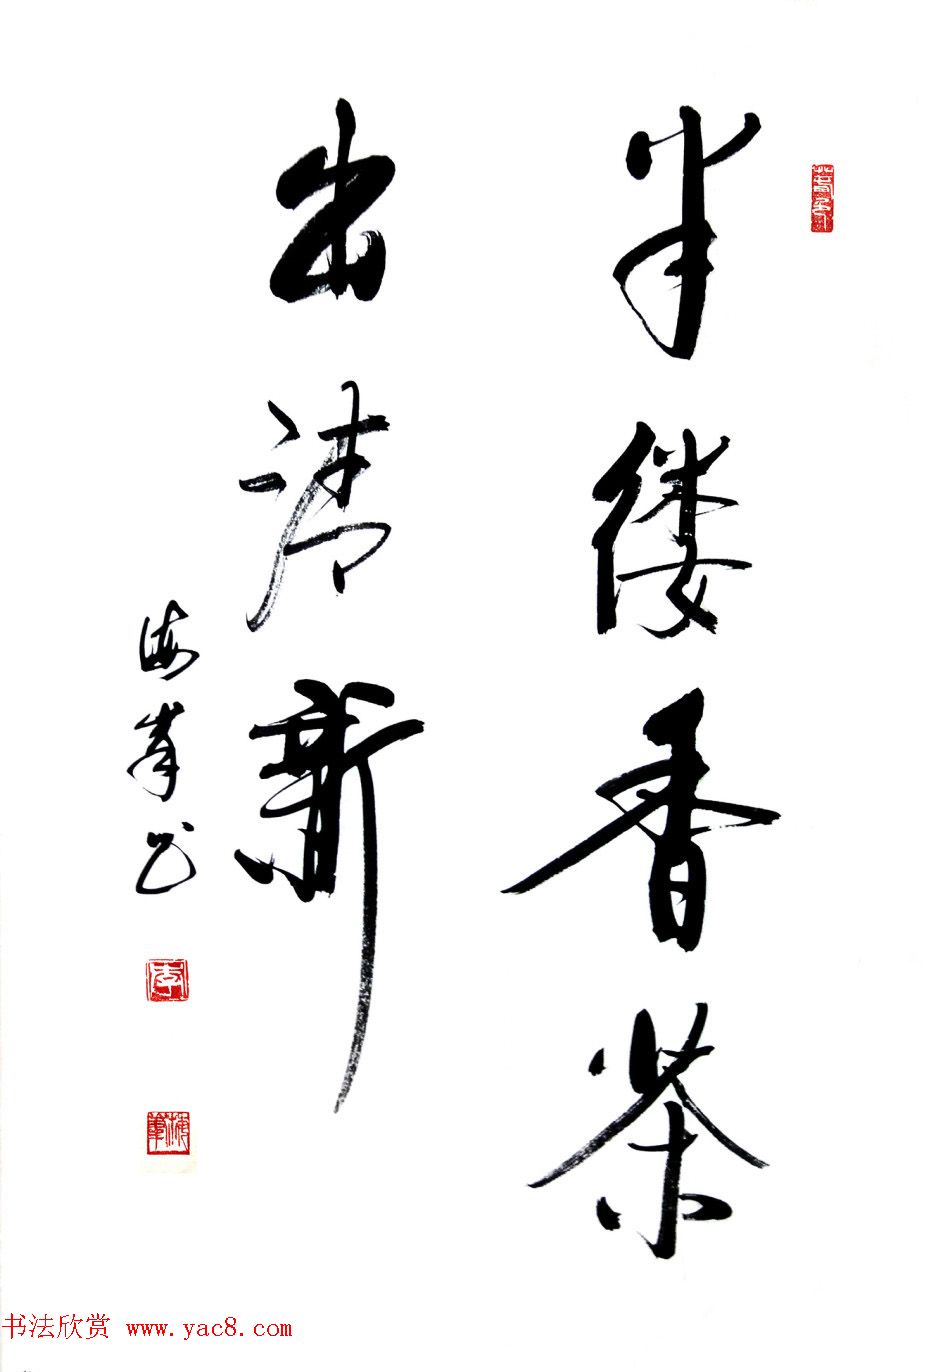 半缕香茶
出清新
海峯书
书法欣赏 www.yac8.com